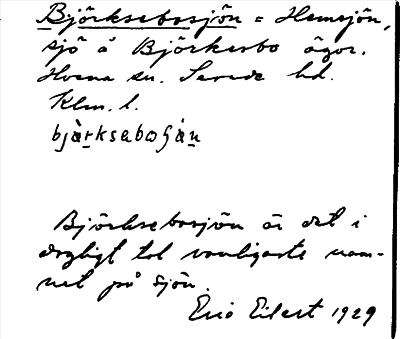 Björksebosjön = Hemsjön,
sjö å Björksebo ägor.
Hvena sn. Sevede hd.
Klm. l.
bjàrksaboʃȧn
Björksebosjön är det i
dagligt tal vanligaste nam-
net på sjön.
Eric Eilert 1929